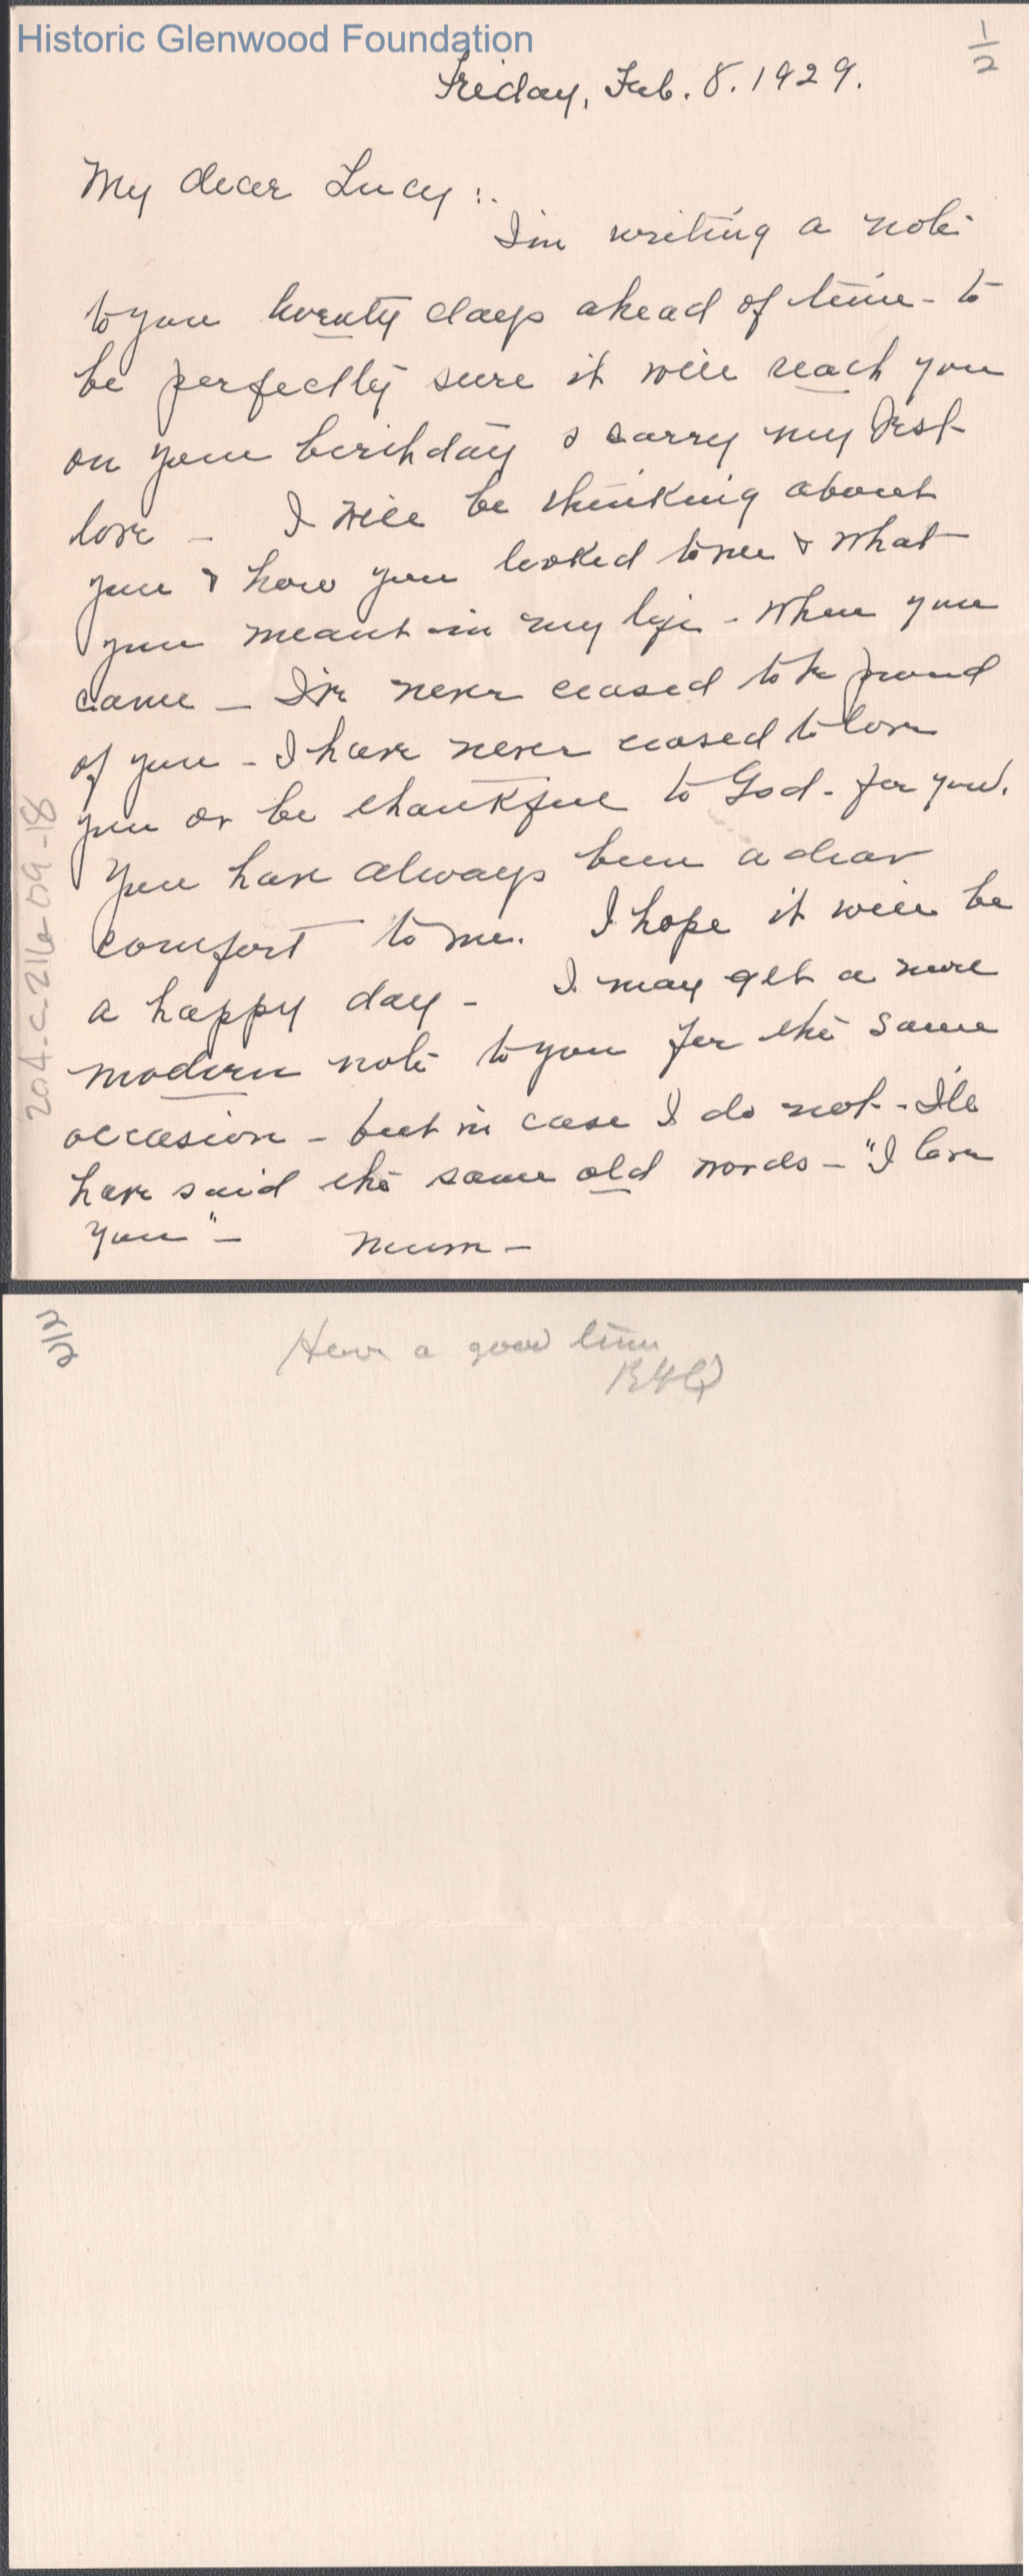 Historic Glenwood Foundation
1/2
Friday, Feb. 8. 1929.
My dear Lucy :.
I'm writing a note
to you twenty days ahead of time - to
be perfectly sure it will reach you
on your birthday & carry my best
love - I will be thinking about
you & how you looked to me & what
you meant in my life - when you
came - I've never ceased to be proud
of you - I have never ceased to love
you or be thankful to God - for you.
You have always been a dear
comfort to me. I hope it will be
a happy day - I may get a more
modern note to you for the same
occasion - but in case I do not - I'll
have said the same old words - "I love
you" - Mum -
204-C-216-09-18
2/2
Have a good time